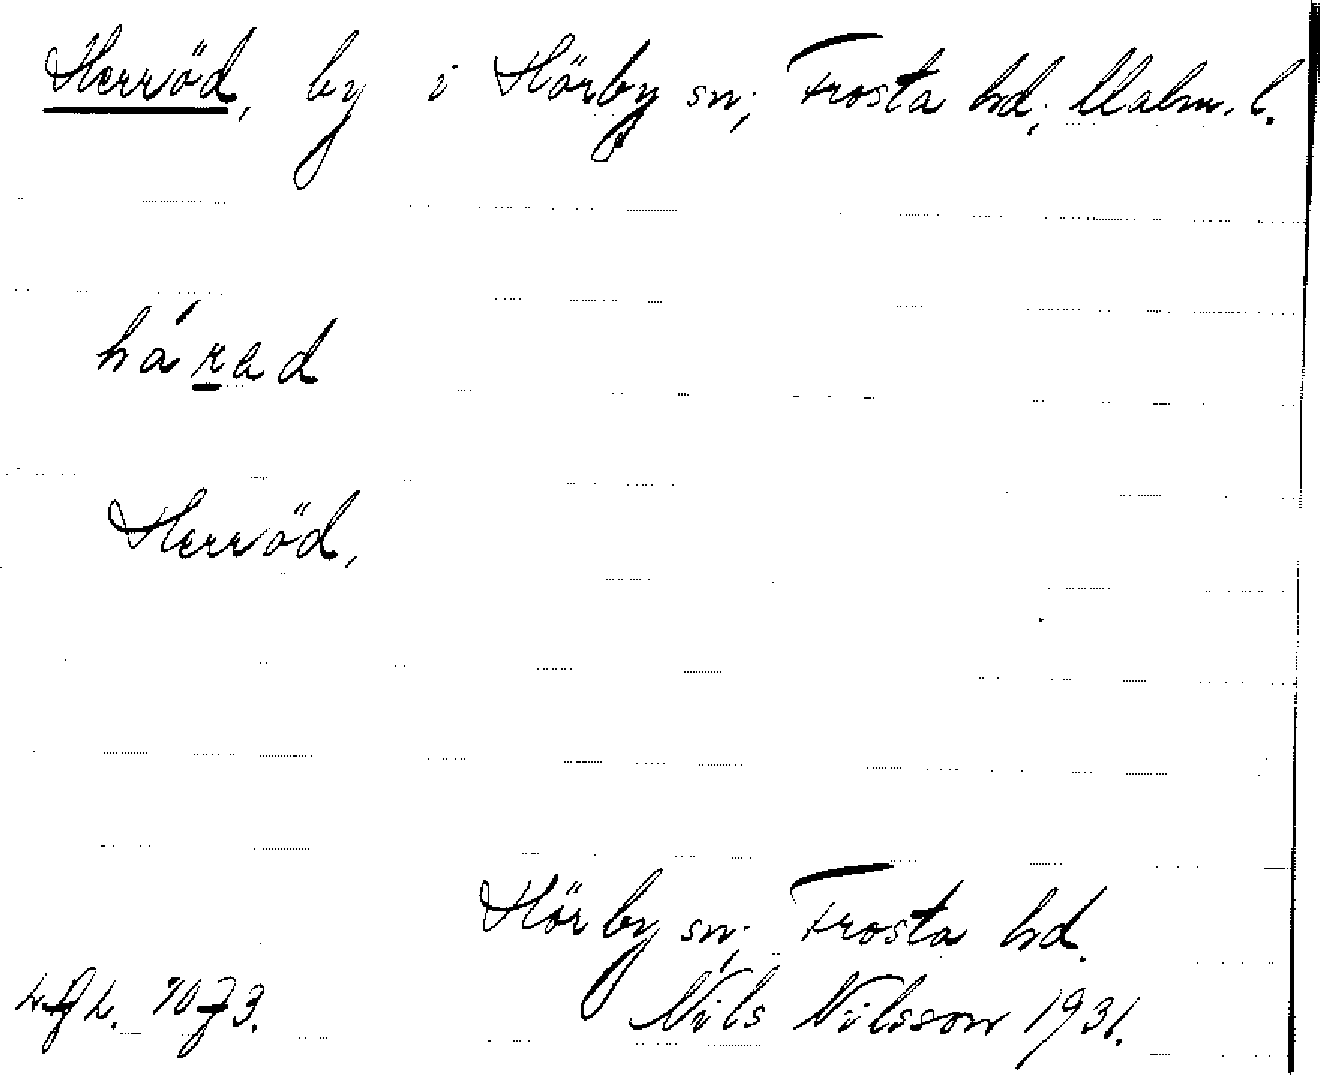 Herröd, by i Hörby sn, Frosta hd, Malm. l.
hárad
Herröd,
Hörby sn, Frosta hd.
Nils Nilsson 1931.